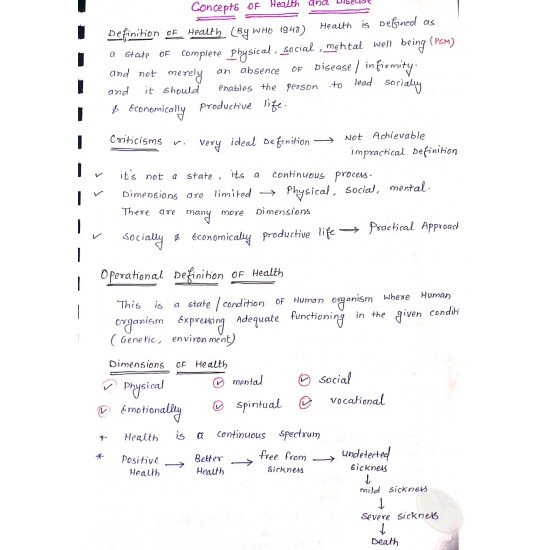 Concepts OF Health and Disease
Definition of Health (By WHO 1948) Health is Defined as
a state OF complete physical, social, mental well being (PSM)
and not merely an absence OF Disease / infirmity.
and it should enables the person to lead socially
& Economically productive life.
Criticisms ✓. very ideal Definition → Not Achievable
impractical Definition
✓ it's not a state, its a continuous process.
✓ Dimensions are limited → Physical, social, mental.
There are many more Dimensions
✓ socially & Economically productive life → Practical Approad
Operational Definition OF Health
This is a state / condition OF Human organism where Human
organism Expressing Adequate functioning in the given conditi
(Genetic, environment)
Dimensions OF Health
✓ Physical ✓ mental ✓ social
✓ Emotionally ✓ spiritual ✓ vocational
* Health is a continuous spectrum
* Positive Health → Better Health → free from sickness → undetected sickness
↓
mild sickness
↓
severe sickness
↓
Death